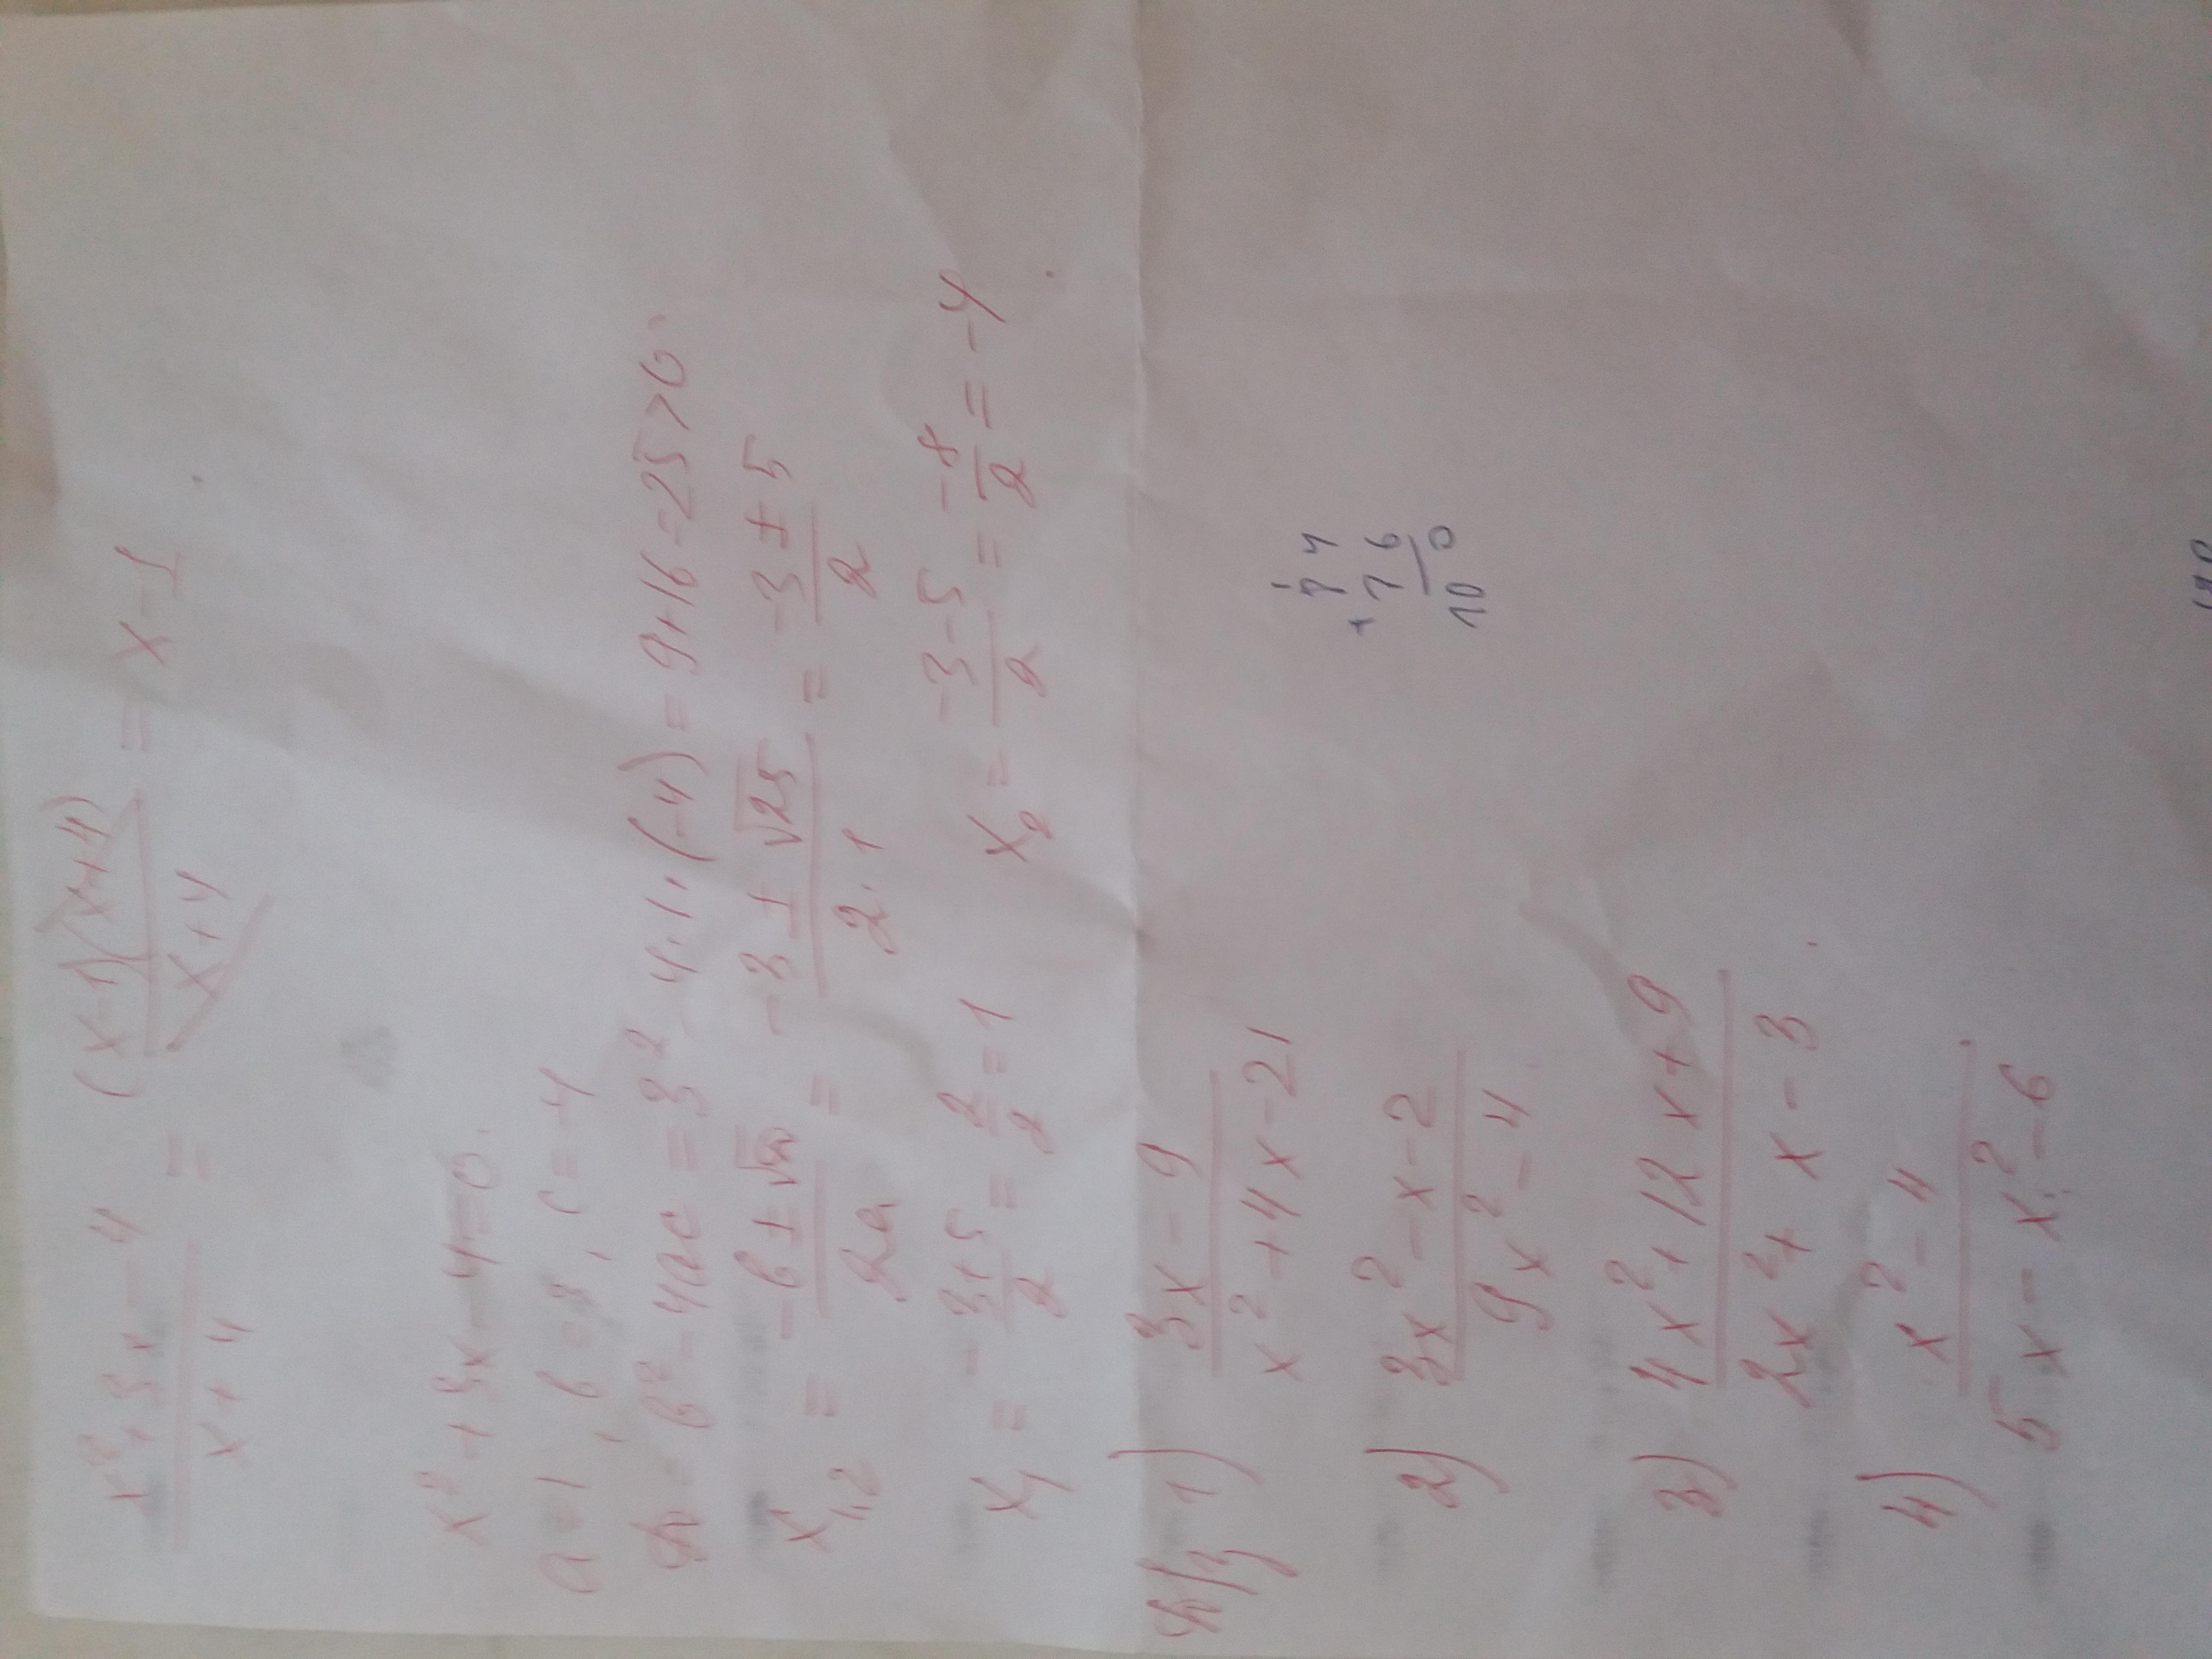 x²+3x-4/x+4 = (x-1)(x+4)/x+4 = x-1.
x²+3x-4=0.
a=1, b=3, c=-4
D=b²-4ac=3²-4·1·(-4)=9+16=25>0.
x₁,₂ = -b±√D/2a = -3±√25/2·1 = -3±5/2
x₁ = -3+5/2 = 2/2 = 1 x₂ = -3-5/2 = -8/2 = -4.
Д/з 1) 3x-9/x²+4x-21
2) 3x²-x-2/9x²-4.
3) 4x²+12x+9/2x²+x-3.
4) x²-4/5x-x²-6.
1
74
+ 76
100